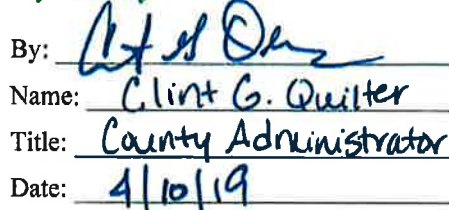 By:
Name: Clint G. Quilter
Title: County Administrator
Date: 4/10/19